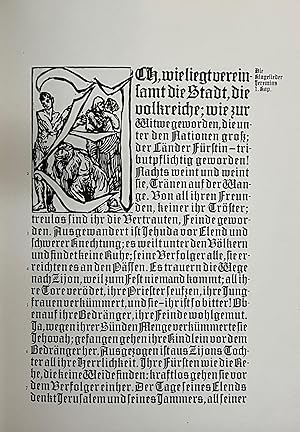 Ach, wie liegt verein=
samt die Stadt, die
volkreiche; wie zur
Witwe geworden, die un=
ter den Nationen groß;
der Länder Fürstin – tri=
butpflichtig geworden!
Nachts weint und weint
sie, Tränen auf der Wan=
ge. Von all ihren Freun=
den, keiner ihr Tröster;
treulos sind ihr die Vertrauten, Feinde gewor=
den. Ausgewandert ist Jehuda vor Elend und
schwerer Knechtung; es weilt unter den Völkern
und findet keine Ruhe; seine Verfolger alle, sie er=
reichten es an den Pässen. Es trauern die Wege
nach Zijon, weil zum Fest niemand kommt; all ih=
re Tore verödet, ihre Priester seufzen, ihre Jung=
frauen verkümmert, und sie – ihr ist so bitter! Ob=
enauf ihre Bedränger, ihre Feinde wohlgemut.
Ja, wegen ihrer Sünden Menge verkümmerte sie
Jehovah; gefangen gehen ihre Kindlein vor dem
Bedränger her. Ausgezogen ist aus Zijons Toch=
ter all ihre Herrlichkeit. Ihre Fürsten wie die Re=
he, die keine Weide finden; kraftlos gehen sie vor
dem Verfolger einher. Der Tage seines Elends
denkt Jerusalem und seines Jammers, all seiner
Die
Klagelieder
Jeremias
1. Kap.